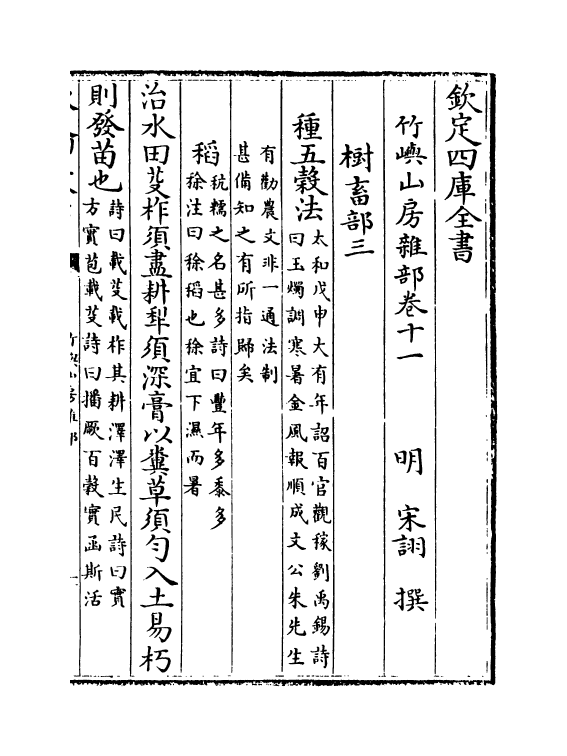 欽定四庫全書
竹嶼山房雜部卷十一　明　宋詡　撰
樹畜部三
種五穀法
太和戊申大有年詔百官觀稼劉禹錫詩
曰玉燭調寒暑金風報順成文公朱先生
有勸農文非一通法制
甚備知之有所指歸矣
稻
秔糯之名甚多詩曰豐年多黍多
稌注曰稌稻也稌宜下濕而暑
治水田芟柞須盡耕犁須深膏以糞草須勻入土易朽
則發苗也
詩曰載芟載柞其耕澤澤生民詩曰實
方實苞載芟詩曰播厥百穀實函斯活